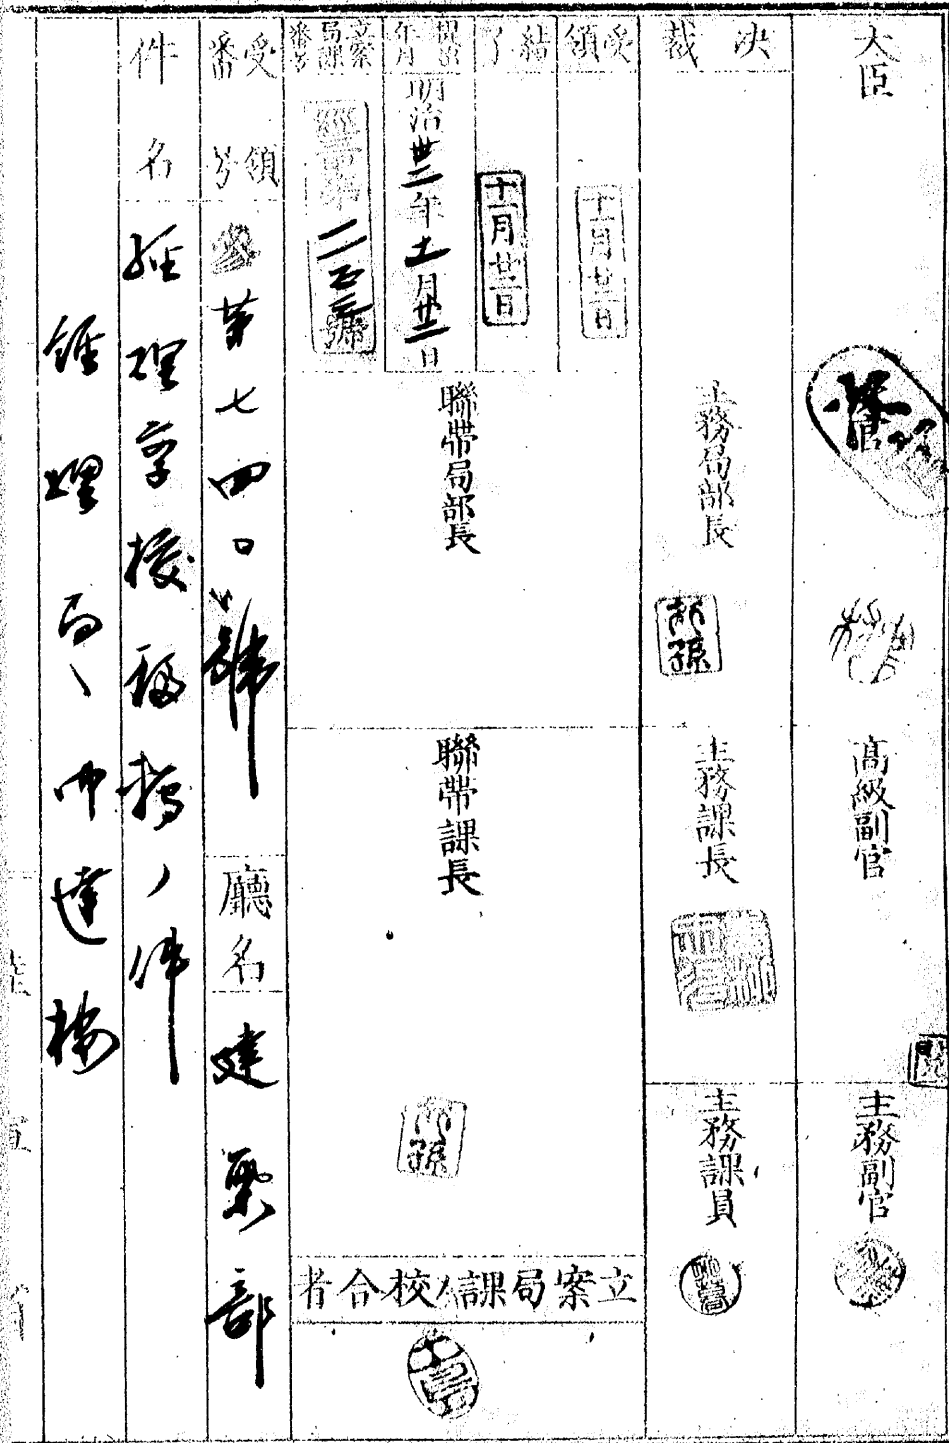 大臣
高級副官
主務副官
決裁
主務局部長
主務課長
主務課員
受領
十一月廿二日
結了
十一月廿二日
提出年月
明治卅二年十一月廿二日
立案局課番号
聯帶局部長
聯帶課長
立案局課校合者
受領番号
第七四〇號
廳名
建築部
件名
經理学校移轉ノ件
經理局ヘ御達按